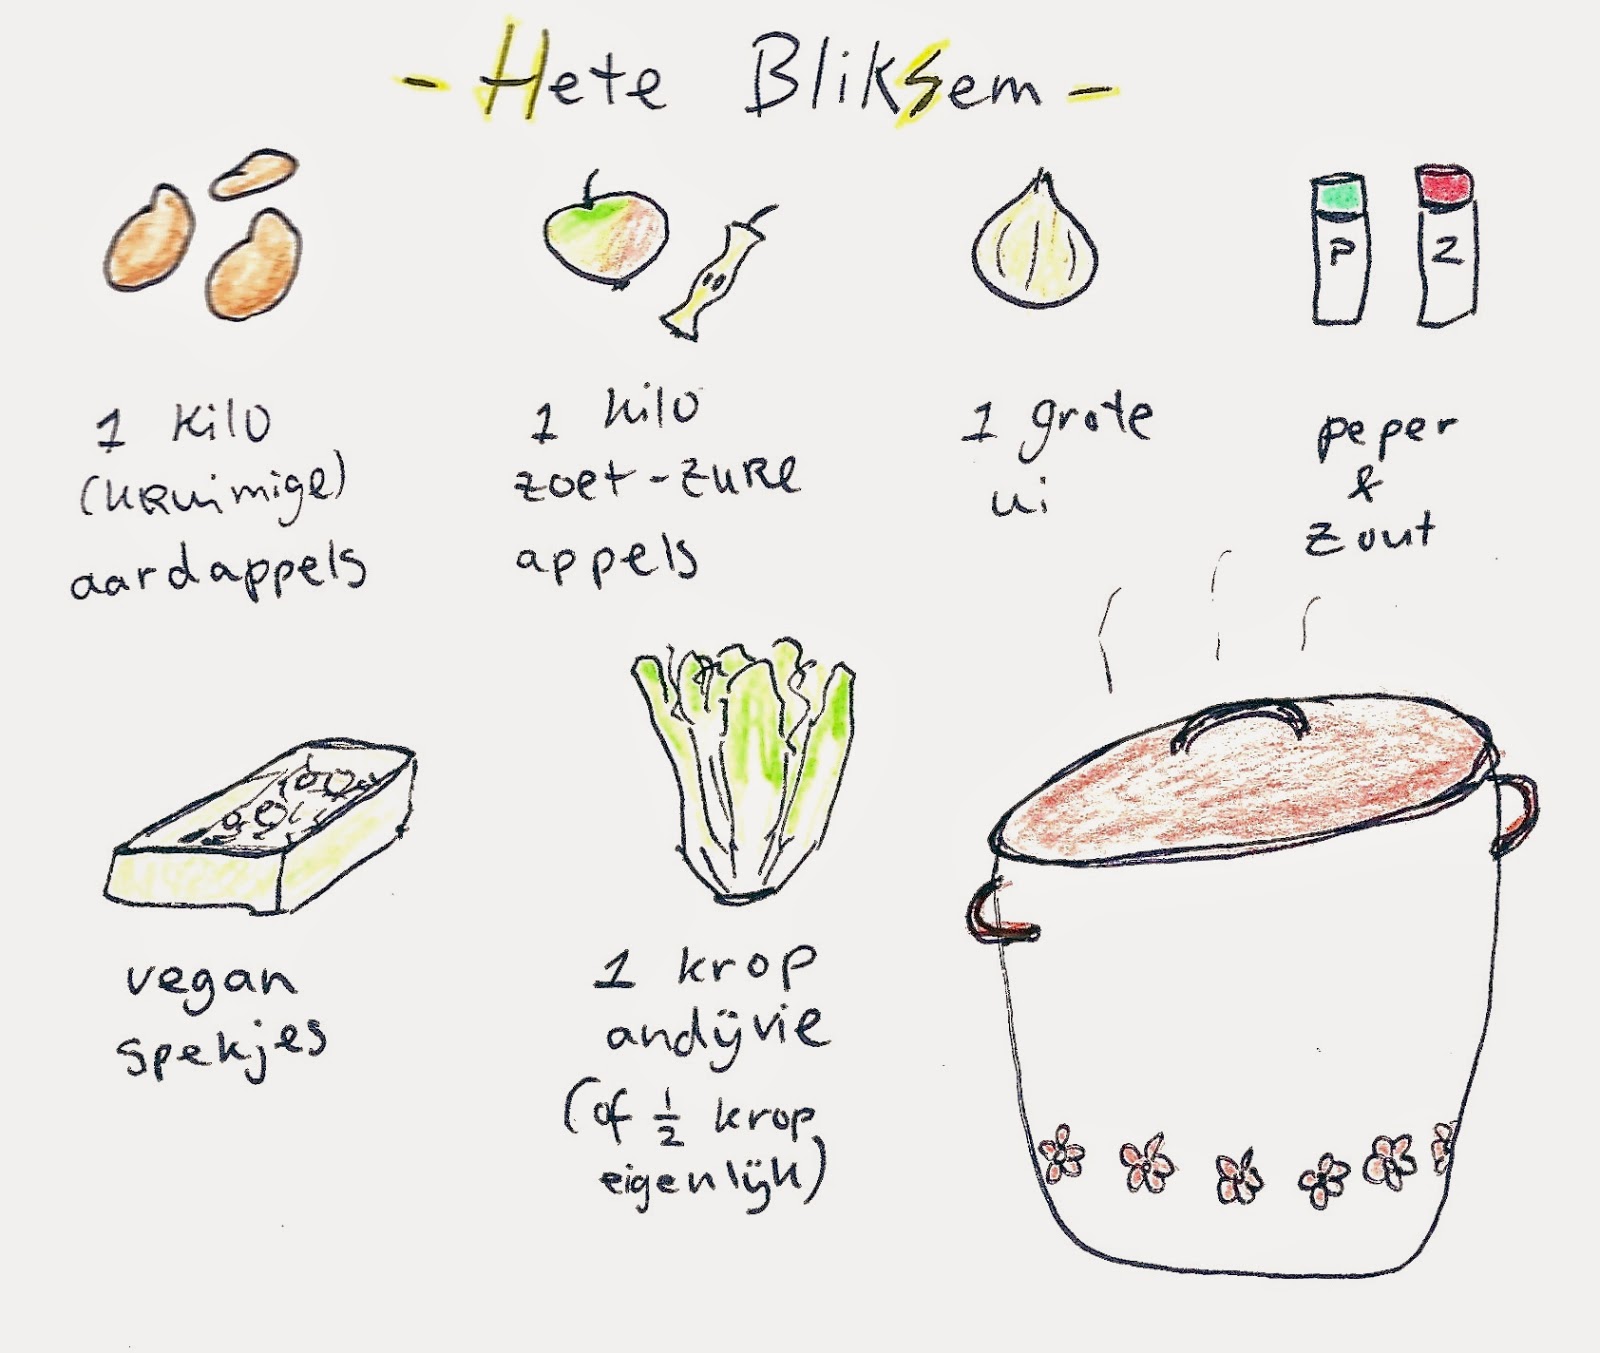 - Hete Bliksem -
P Z
1 kilo
(kruimige)
aardappels
1 kilo
zoet-zure
appels
1 grote
ui
peper
&
zout
vegan
spekjes
1 krop
andijvie
(of ½ krop
eigenlijk)